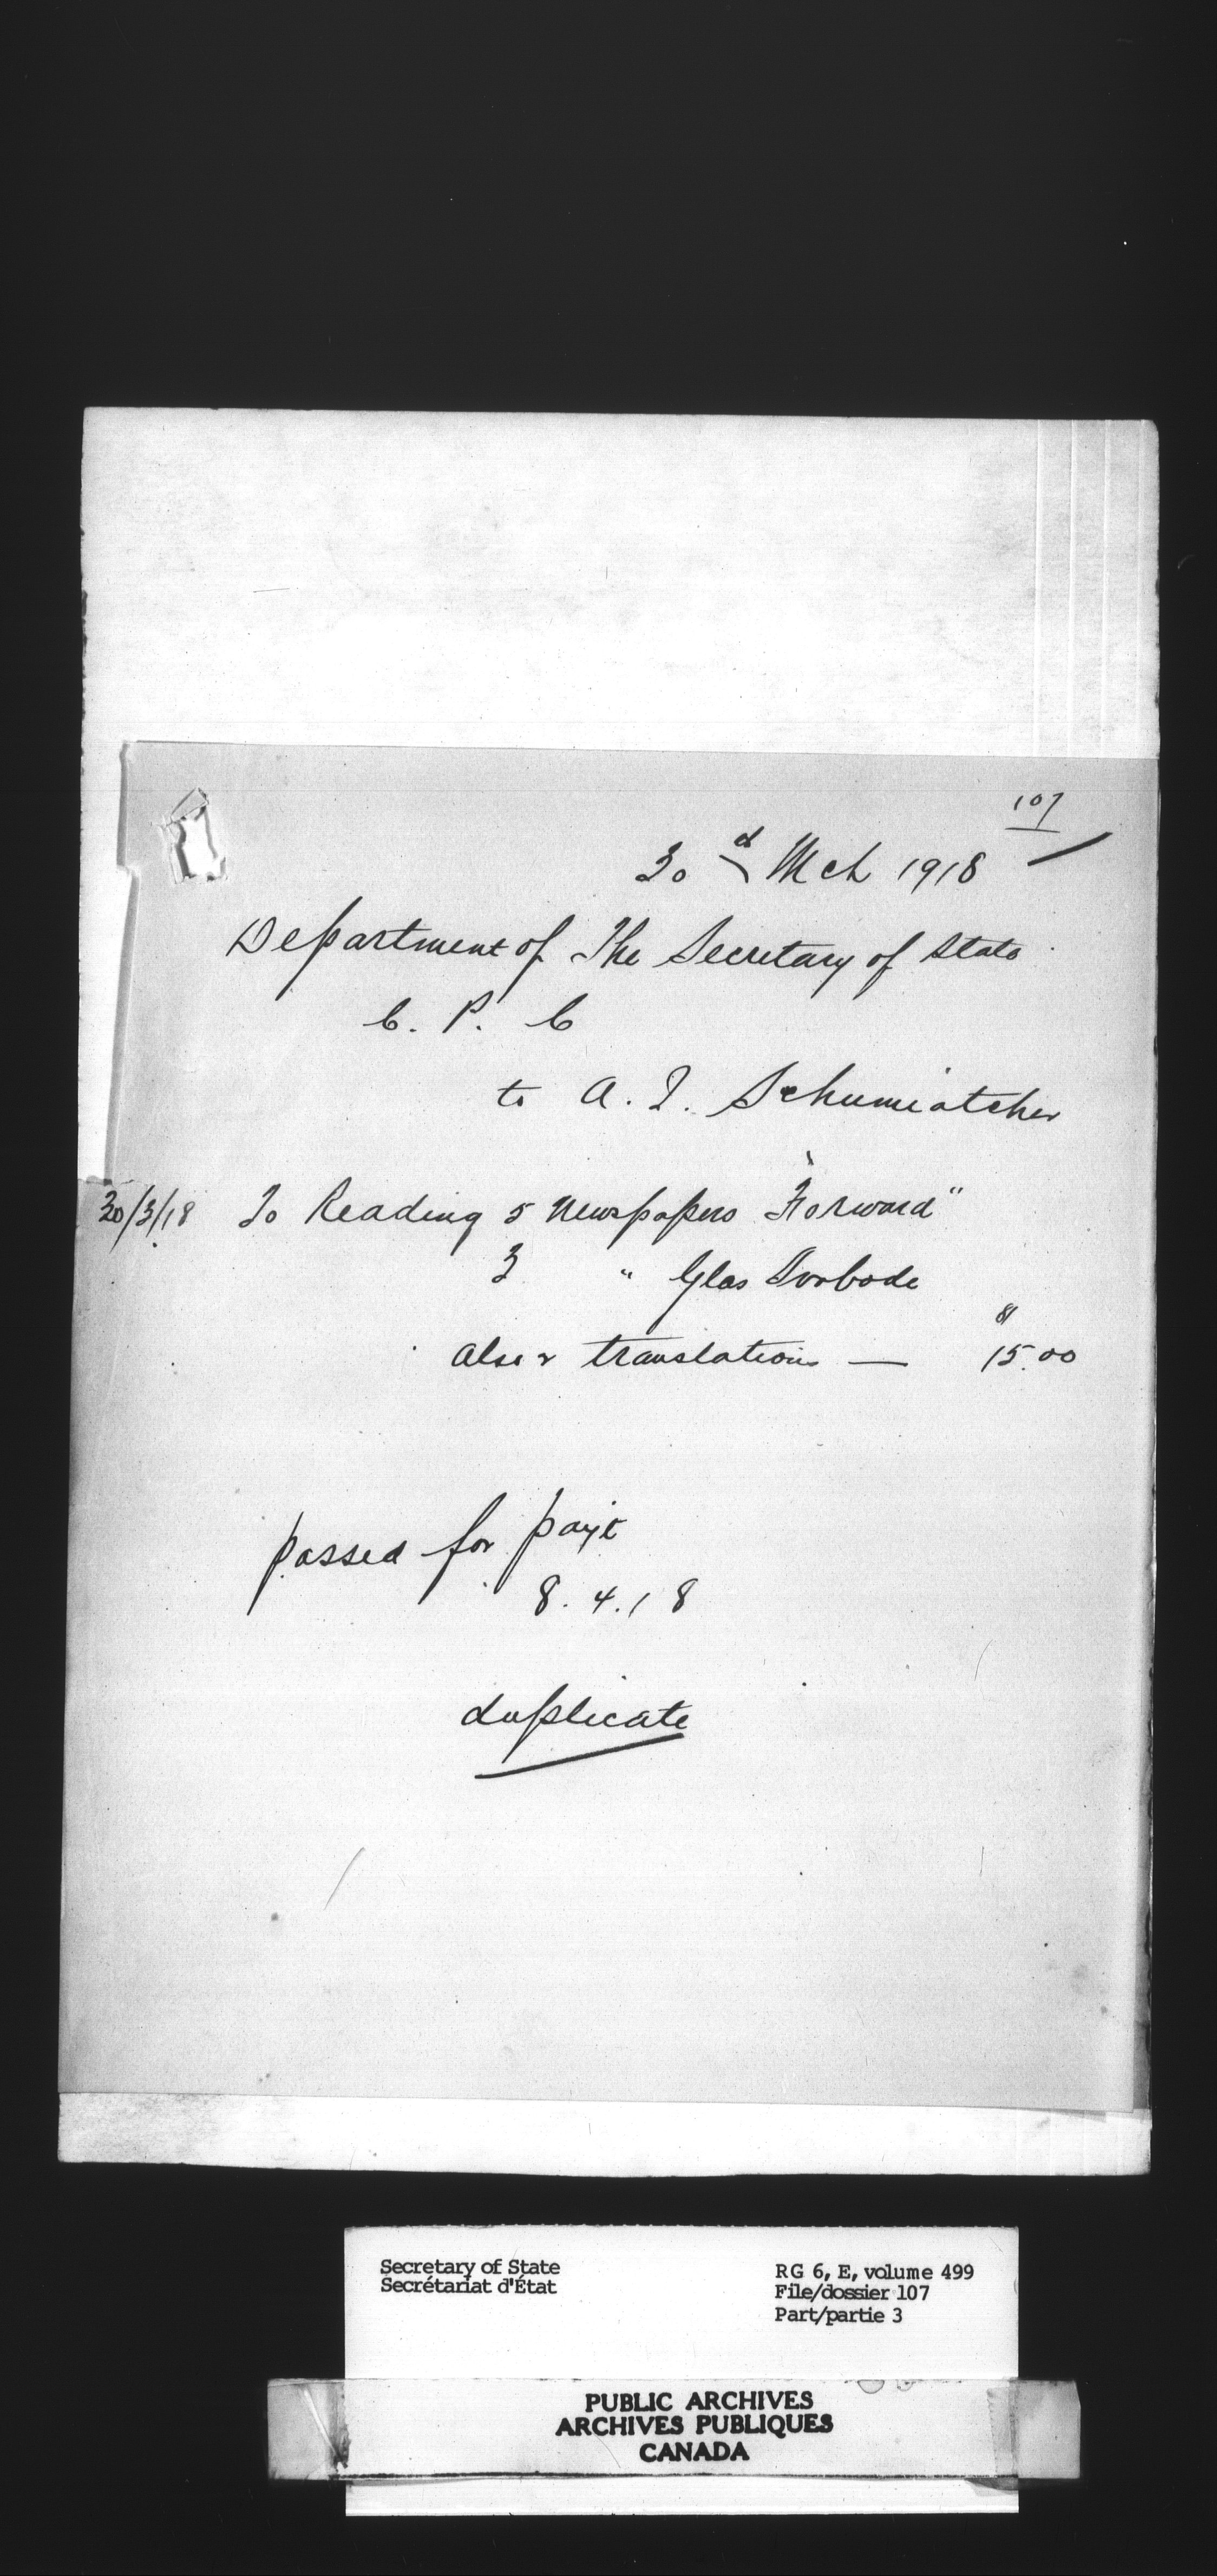 107
30 d Mch 1918
Department of The Secretary of State
C. P. C
to A. I. Schumiatcher
30/3/18 To Reading 5 Newspapers "Forward"
3 " Glas Svobode
also translations — 15.00
passed for payt
8.4.18
duplicate
Secretary of State
Secrétariat d'État
RG 6, E, volume 499
File/dossier 107
Part/partie 3
PUBLIC ARCHIVES
ARCHIVES PUBLIQUES
CANADA